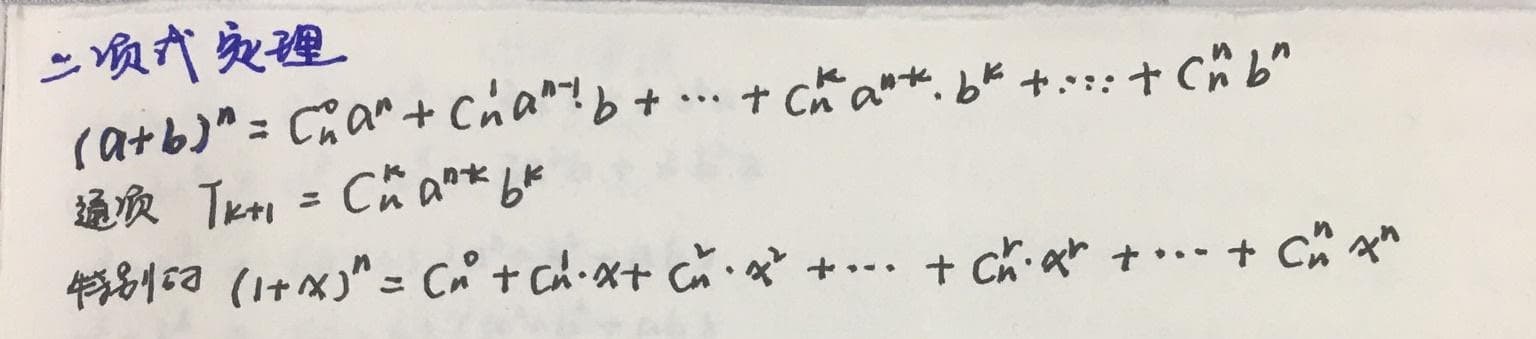 二项式定理
(a+b)ⁿ = Cₙ⁰aⁿ + Cₙ¹aⁿ⁻¹·b + ⋯ + Cₙᵏaⁿ⁻ᵏ·bᵏ + ⋯ + Cₙⁿbⁿ
通项 Tₖ₊₁ = Cₙᵏaⁿ⁻ᵏbᵏ
特别的 (1+x)ⁿ = Cₙ⁰ + Cₙ¹·x + Cₙ²·x² + ⋯ + Cₙʳ·xʳ + ⋯ + Cₙⁿxⁿ